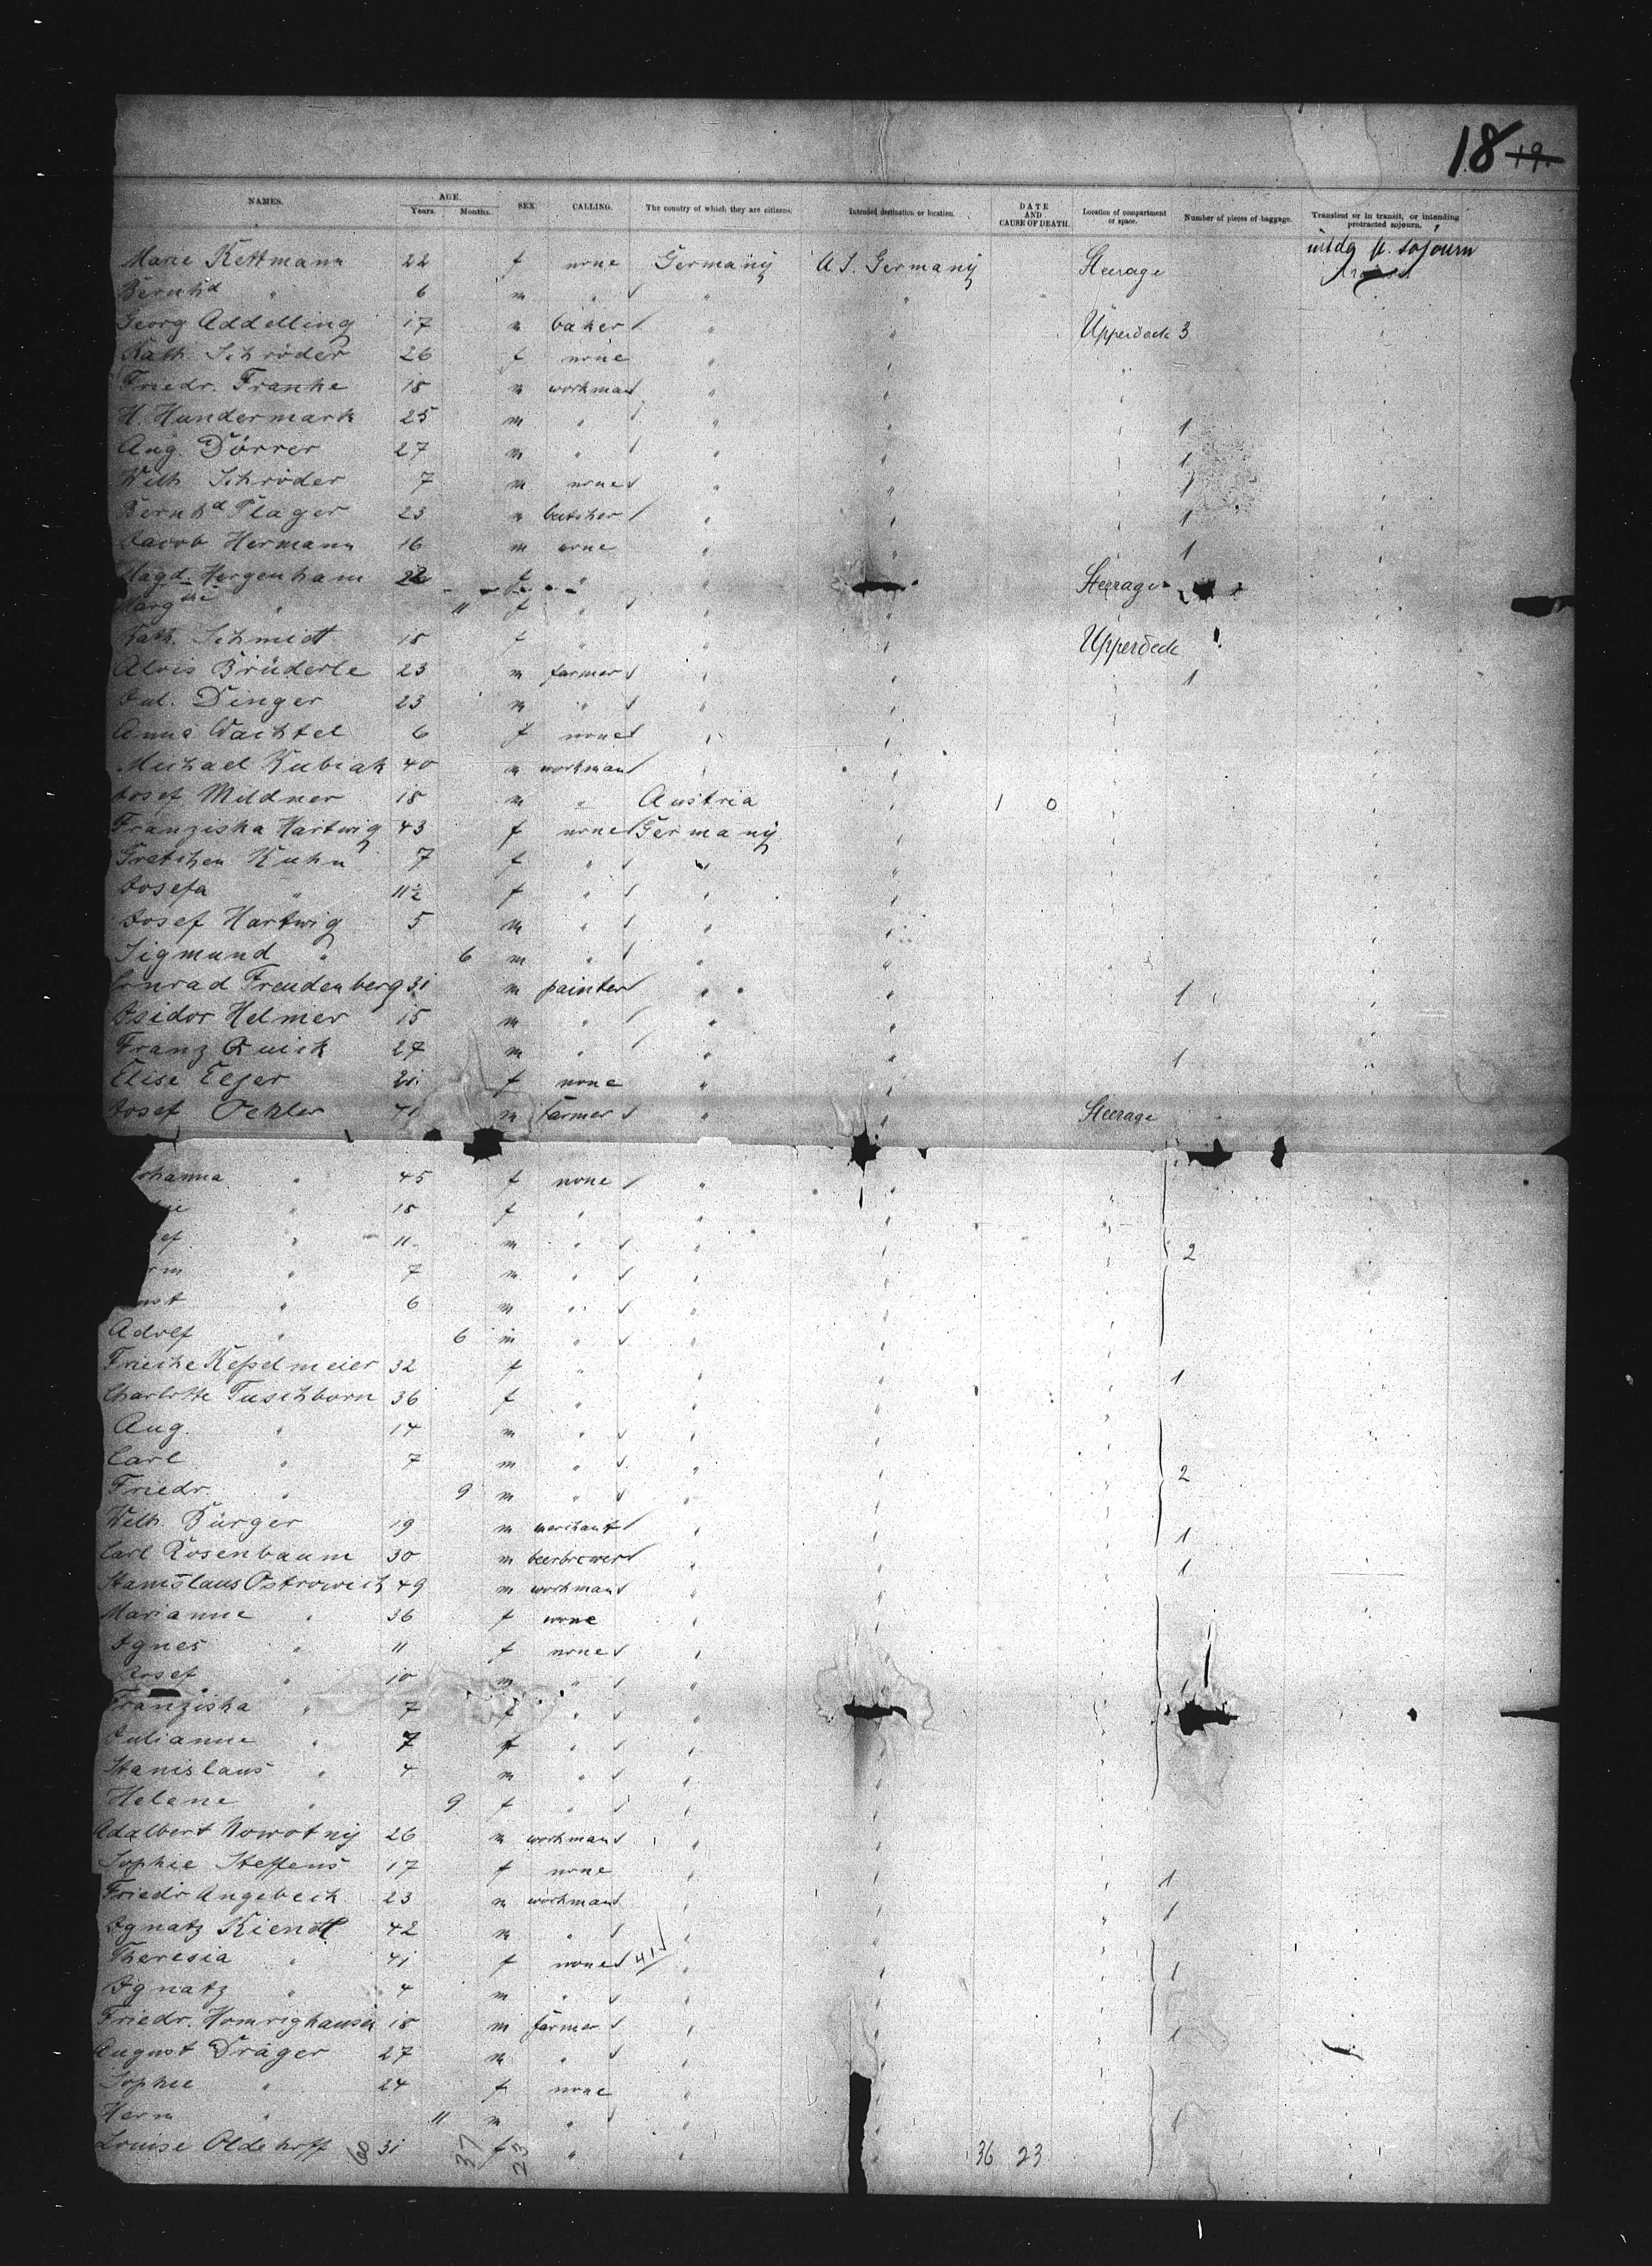 18 19.
NAMES. AGE. Years. Months. SEX. CALLING. The country of which they are citizens. Intended destination or location. DATE AND CAUSE OF DEATH. Location of compartment or space. Number of pieces of baggage. Transient or in transit, or intending protracted sojourn.
Marie Kettmann 22 f none Germany U.S. Germany Steerage intdg p. sojourn
Bernhd " 6 m " " "
Georg Addelling 17 m baker " " Upperdeck 3
Kath. Schröder 26 f none " "
Friedr. Franke 18 m workman " "
H. Hundermark 25 m " " " 1
Aug. Dörrer 27 m " " " 1
Wilh. Schröder 7 m none " " 1
Bernhd Plager 23 m butcher " " 1
Jacob Hermann 16 m none " " 1
Magd. Hergenham 22 f " " Steerage
Margthe " 11 f " " "
Kath. Schmidt 18 f " " " Upperdeck 1
Alois Brüderle 23 m farmer " " 1
Jul. Dinger 23 m " " "
Anna Wachtel 6 f none " "
Michael Kubiak 40 m workman " "
Josef Mildner 18 m " Austria " 1 0
Franziska Hartwig 43 f none Germany "
Gretchen Kuhn 7 f " " "
Josefa " 11½ f " " "
Josef Hartwig 5 m " " "
Sigmund " 6 m " " "
Conrad Freudenberg 31 m painter " " 1
Isidor Helmer 15 m " " "
Franz Quick 27 m " " " 1
Elise Eejer 21 f none " "
Josef Oehler 41 m farmer " " Steerage
ohanna " 45 f none " "
" 18 f " " "
ef " 11 m " " " 2
rm " 7 m " " "
ust " 6 m " " "
Adolf " 6 m " " "
Frieche Keßelmeier 32 f " " " 1
Charlotte Tuschborn 36 f " " "
Aug. " 14 m " " "
Carl " 7 m " " " 2
Friedr. " 9 m " " "
Wilh. Bürger 19 m merchant " " 1
Carl Rosenbaum 30 m beerbrewer " " 1
Stanislaus Ostrowich 49 m workman " "
Marianne " 36 f none " "
Agnes " 11 f none " " 1
Josef " 10 m " " "
Franziska " 7 f " " "
Julianne " 7 f " " "
Stanislaus " 4 m " " "
Helene " 9 f " " "
Adalbert Nowotny 26 m workman " "
Sophie Steffens 17 f none " " 1
Friedr Angebeck 23 m workman " " 1
Ignatz Kiendl 42 m " " "
Theresia " 41 f none 41 " " 1
Ignatz " 4 m " " "
Friedr. Homrighausen 18 m farmer " " 1
August Dräger 27 m " " "
Sophie " 24 f none " "
Herm " 11 m " " " 1
Louise Oldehoff 60 31 37 f 23 " " " 36 23